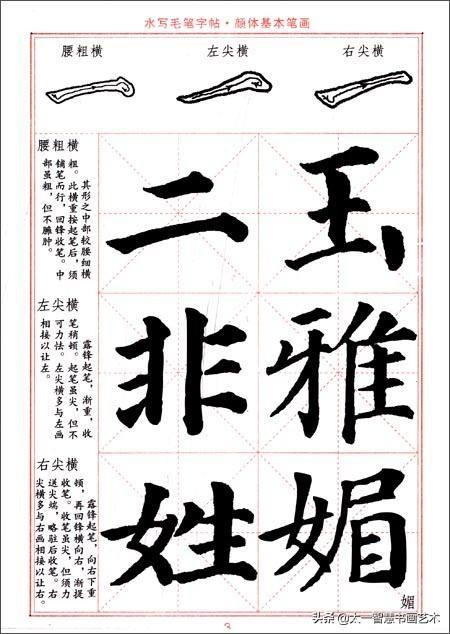 水写毛笔字帖·颜体基本笔画
腰粗横
左尖横
右尖横
腰粗横
其形之中部较腰细横
粗。此横重按起笔后，须
铺笔而行，回锋收笔。中
部虽粗，但不臃肿。
二
玉
左尖横
露锋起笔，渐重，收
笔稍顿。起笔虽尖，但不
可力怯。左尖横多与左画
相接以让左。
非
雅
右尖横
露锋起笔，向右下重
顿，再回锋横向右，渐提
收笔。收笔虽尖，但须力
送尖端，略驻后收笔。右
尖横多与右画相接以让右。
姓
媚
媚
3
头条@太一智慧书画艺术